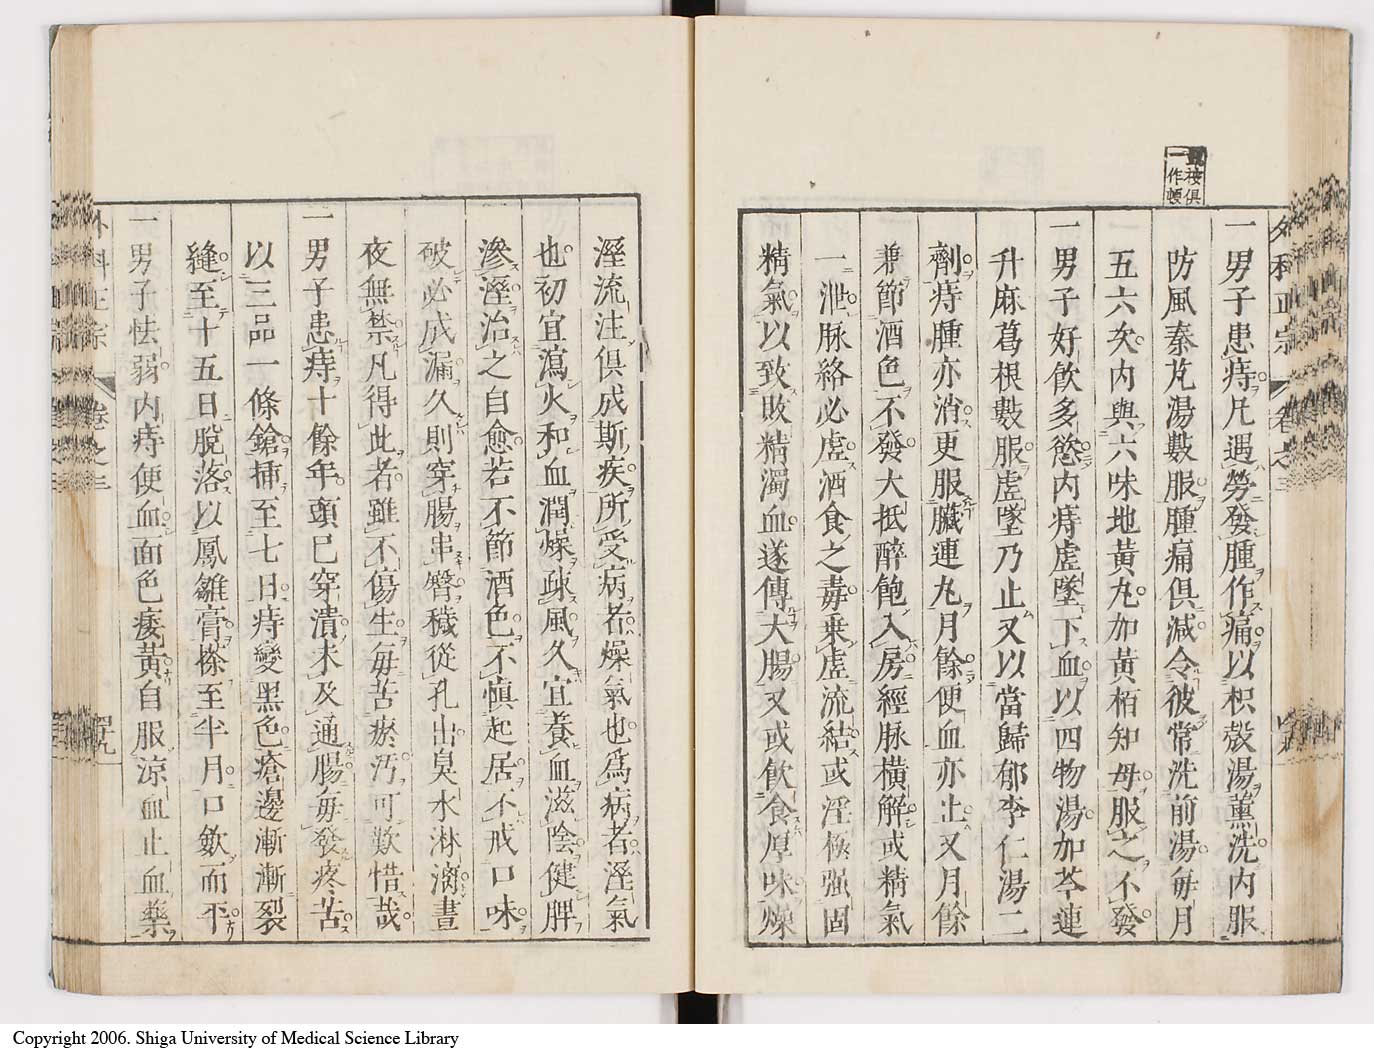 一男子患痔凡遇勞發腫作痛以枳殼湯薰洗內服
防風秦艽湯數服腫痛俱減令彼常洗前湯每月
五六次內與六味地黃丸加黃柏知母服之不發
一男子好飲多慾內痔虛墜下血以四物湯加芩連
升麻葛根數服虛墜乃止又以當歸郁李仁湯二
劑痔腫亦消更服臟連丸月餘便血亦止又月餘
兼節酒色不發大抵醉飽入房經脉橫解或精氣
一泄脉絡必虛酒食之毒乗虛流結或淫極强固
精氣以致敗精濁血遂傳大腸又或飲食厚味燥
按俱
一作頓
外科正宗 卷之三
溼流注俱成斯疾所受病者燥氣也爲病者溼氣
也初宜瀉火和血潤燥疎風久宜養血滋陰健脾
滲溼治之自愈若不節酒色不慎起居不戒口味
破必成漏久則穿腸串臀穢從孔出臭水淋漓晝
夜無禁凡得此者雖不傷生每苦瘀汚可歎惜哉
一男子患痔十餘年頭已穿潰未及通腸每發疼苦
以三品一條鎗揷至七日痔變黑色瘡邊漸漸裂
縫至十五日脫落以鳳雛膏搽至半月口歛而平
一男子怯弱內痔便血面色痿黃自服凉血止血藥
外科正宗 卷之三
Copyright 2006. Shiga University of Medical Science Library